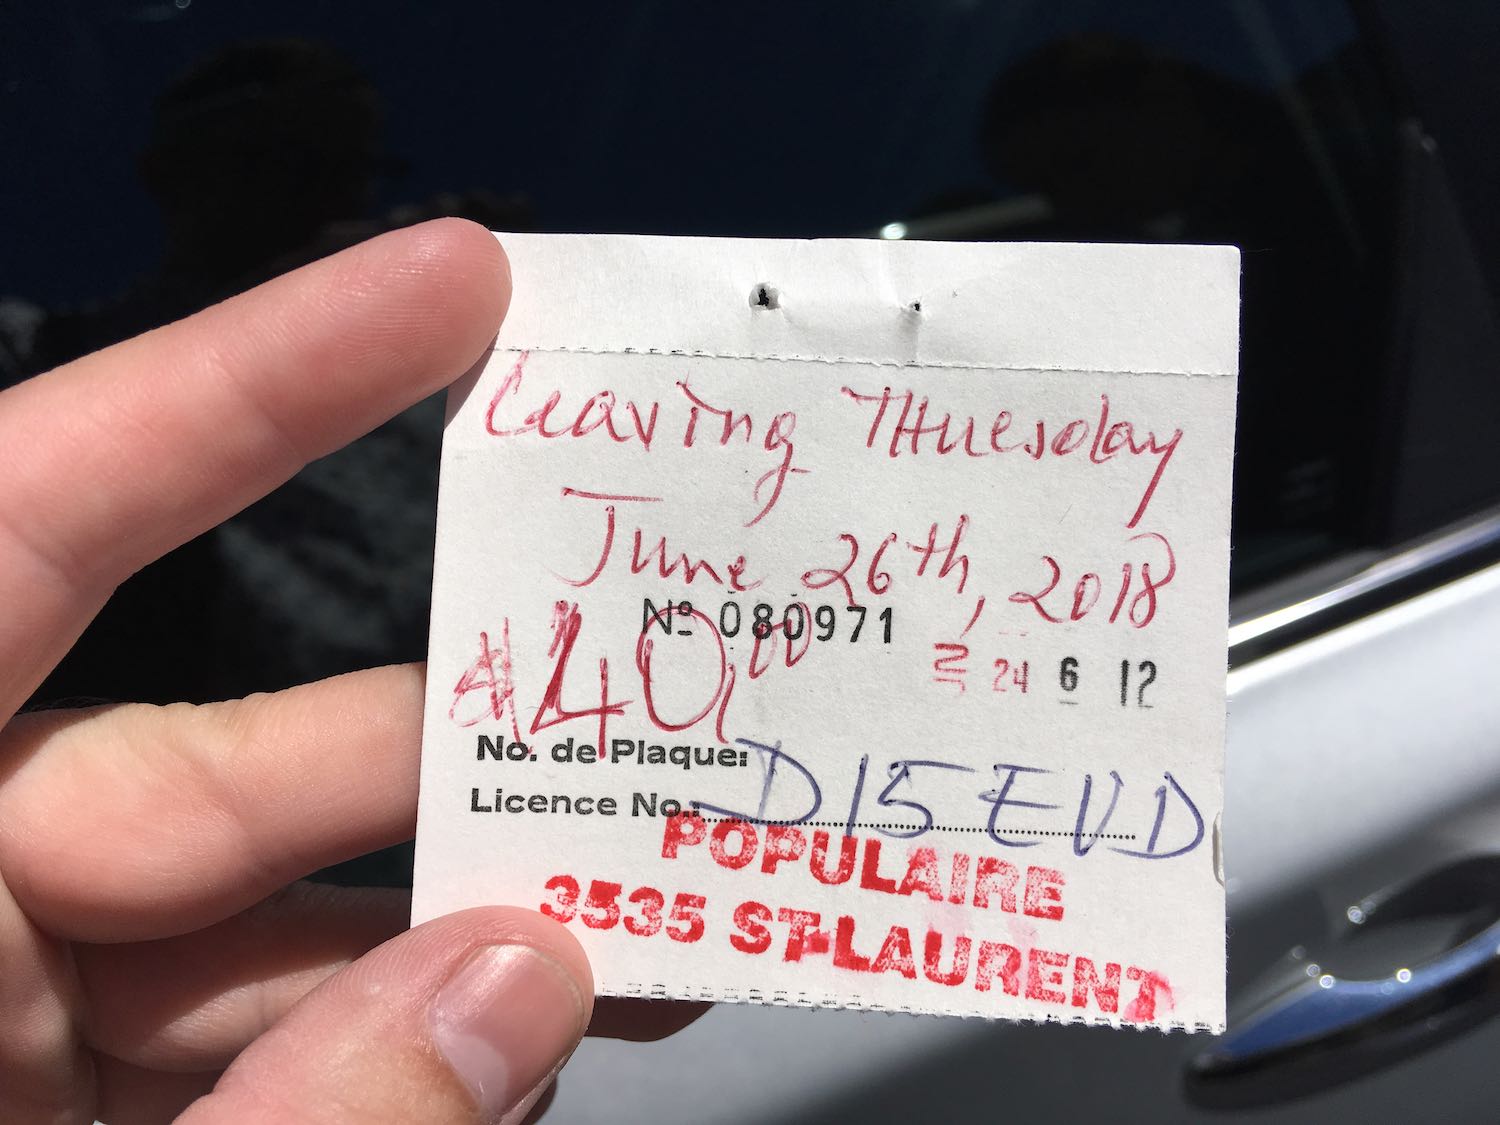 Leaving THuesday
June 26th, 2018
Nº 080971
$40,00
24 6 12
No. de Plaque:
Licence No.: D15EVD
POPULAIRE
3535 ST-LAURENT